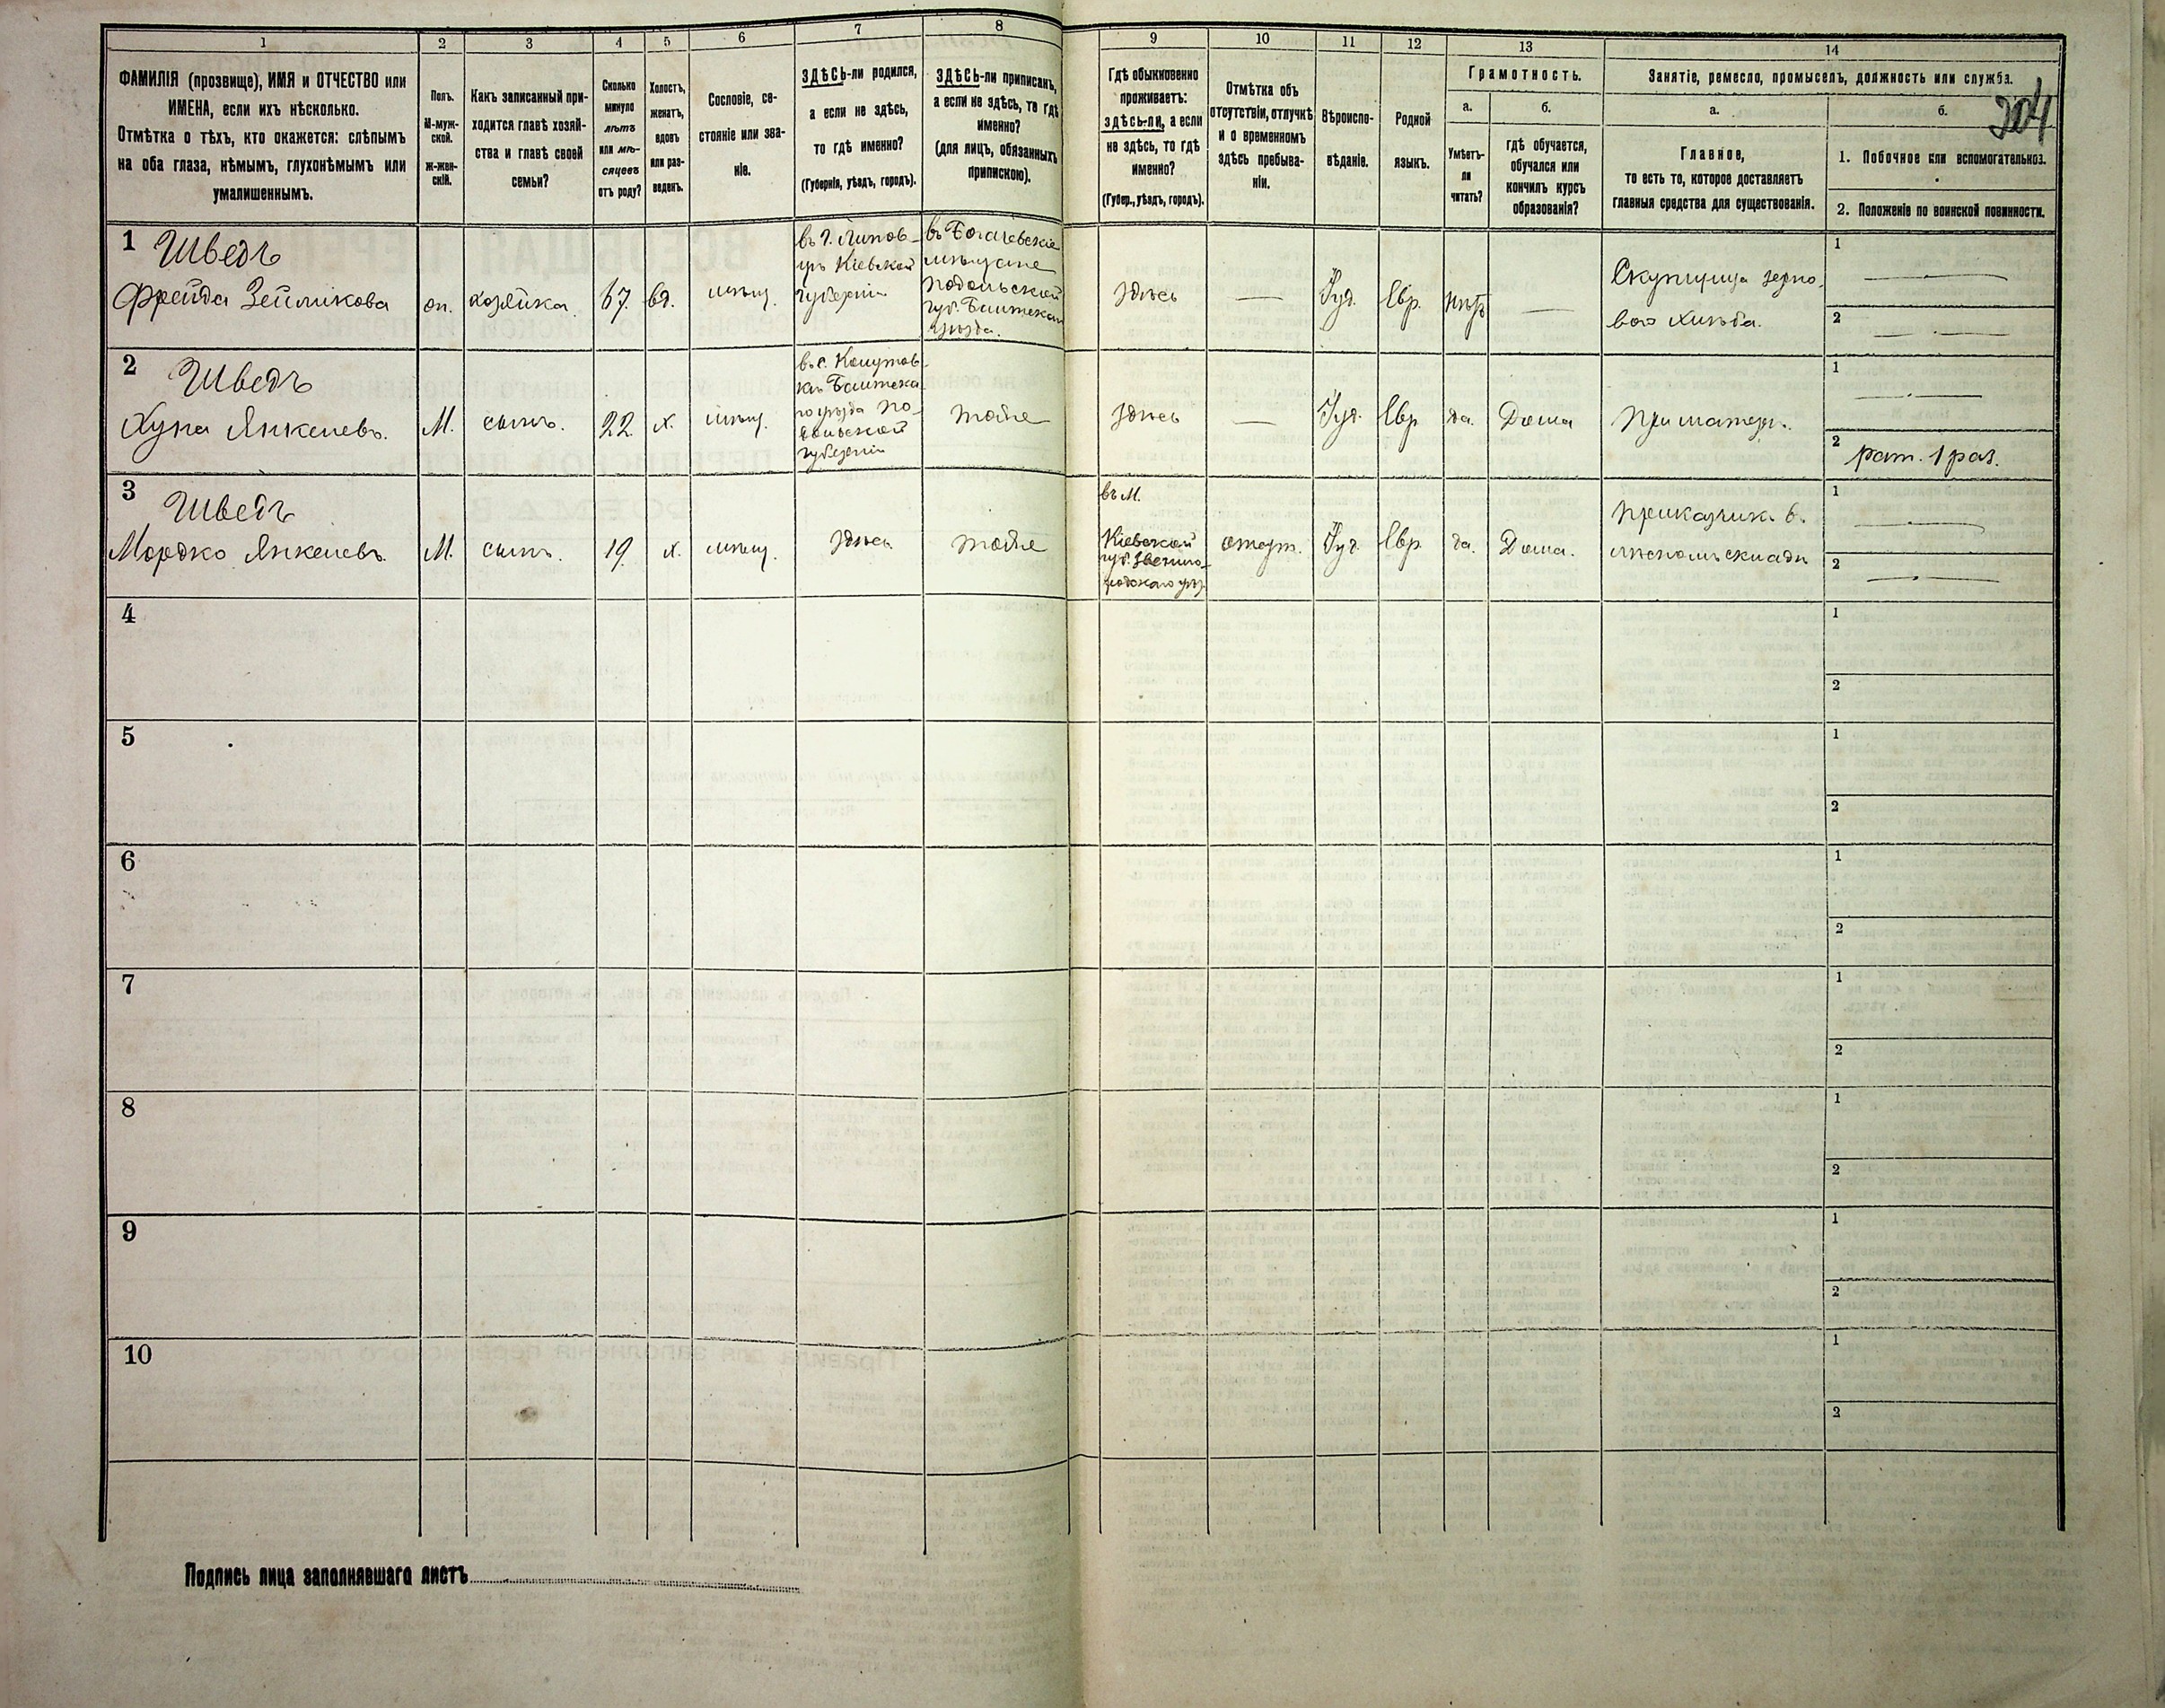 1
2
3
4
5
6
7
8
9
10
11
12
13
14
ФАМИЛІЯ (прозвище), ИМЯ и ОТЧЕСТВО или
ИМЕНА, если ихъ нѣсколько.
Отмѣтка о тѣхъ, кто окажется: слѣпымъ
на оба глаза, нѣмымъ, глухонѣмымъ или
умалишеннымъ.
Полъ.
М-муж-
ской.
Ж-жен-
скій.
Какъ записанный при-
ходится главѣ хозяй-
ства и главѣ своей
семьи?
Сколько
минуло
лѣтъ
или мѣ-
сяцевъ
отъ роду?
Холостъ,
женатъ,
вдовъ
или раз-
веденъ.
Сословіе, со-
стояніе или зва-
ніе.
ЗДѢСЬ-ли родился,
а если не здѣсь,
то гдѣ именно?
(Губернія, уѣздъ, городъ).
ЗДѢСЬ-ли приписанъ,
а если не здѣсь, то гдѣ
именно?
(для лицъ, обязанныхъ
припискою).
Гдѣ обыкновенно
проживаетъ:
здѣсь-ли, а если
не здѣсь, то гдѣ
именно?
(Губер., уѣздъ, городъ).
Отмѣтка объ
отсутствіи, отлучкѣ
и о временномъ
здѣсь пребыва-
ніи.
Вѣроиспо-
вѣданіе.
Родной
языкъ.
Грамотность.
а.
б.
Умѣетъ-
ли
читать?
гдѣ обучается,
обучался или
кончилъ курсъ
образованія?
Занятіе, ремесло, промыселъ, должность или служба.
204
а.
б.
Главное,
то есть то, которое доставляетъ
главныя средства для существованія.
1. Побочное или вспомогательное.
2. Положеніе по воинской повинности.
1 Шведъ
Фрейда Зейликова
хозяйка
67.
вд.
мѣщ.
въ г. Липов-
цѣ Кіевской
губерніи
мѣщане
Подольской
губ. Балтскаго
уѣзда.
здѣсь
—
Іуд.
Евр.
нѣтъ
—
Скупщица зерно-
вого хлѣба.
1
—
2
—
2 Шведъ
Хуна Янкелевъ.
М.
сынъ.
22.
х.
мѣщ.
Балтска-
го уѣзда По-
дольской
губерніи
тоже
здѣсь
—
Іуд.
Евр.
да.
Дома
При матери.
1
—
2
рат. 1 раз.
3 Шведъ
Мордко Янкелевъ.
М.
сынъ.
19.
х.
мѣщ.
здѣсь
тоже
въ м.
Кіевской
губ. Звениго-
родскаго уѣз.
Іуд.
Евр.
да.
Дома.
Приказчикъ в.
лѣсномъ складѣ
1
—
2
—
4
1
2
5
1
2
6
1
2
7
1
2
8
1
2
9
1
2
10
1
2
Подпись лица заполнявшаго листъ